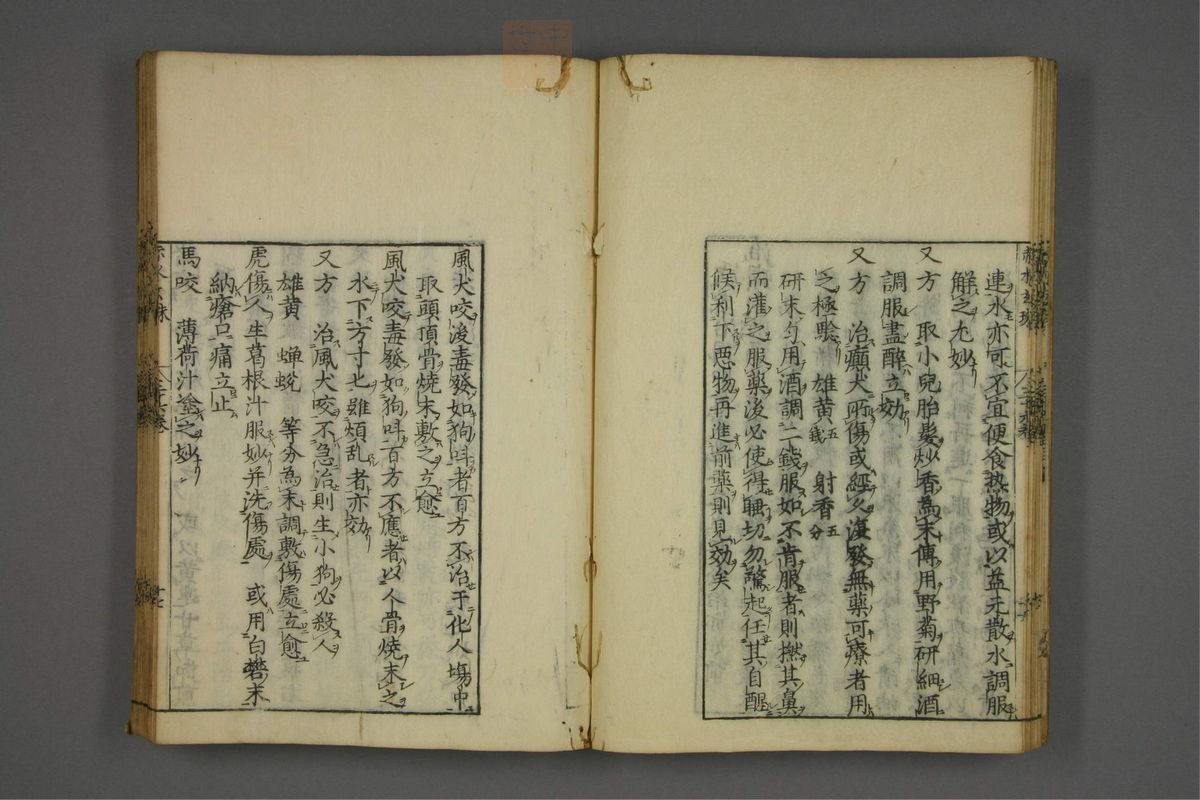 連水亦可不宜便食热物或以益元散水調服
解之尤妙
又方 取小兒胎髮炒香為末傅用野菊研細酒
調服盡醉立効
又方 治癲犬所傷或經久復發無藥可療者用
之極驗 雄黄五錢 射香五分
研末匀用酒調二錢服如不肯服者則撚其鼻
而灌之服藥後必使得睡切勿驚起任其自醒
候利下惡物再進前藥則見効矣
風犬咬後毒發如狗呌者百方不治于化人塲中
取頭頂骨燒末敷之立愈
風犬咬毒發如狗呌百方不應者以人骨燒末之
水下方寸匕雖煩乱者亦効
又方 治風犬咬不急治則生小狗必殺人
雄黄 蝉蛻 等分為末調敷傷處立愈
虎傷人生葛根汁服妙并洗傷處 或用白礬末
納瘡口痛立止
馬咬 薄荷汁塗之妙